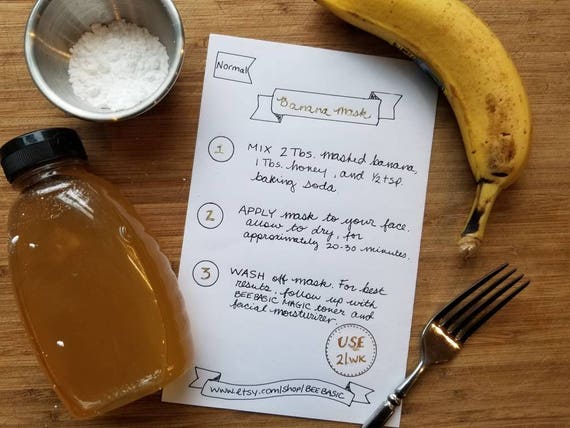 Normal
Banana Mask
1
MIX 2 Tbs. mashed banana,
1 Tbs. honey, and 1/2 tsp.
baking soda
2
APPLY mask to your face.
allow to dry, for
approximately 20-30 minutes.
3
WASH off mask. For best
results, follow up with
BEEBASIC MAGIC toner and
facial moisturizer
USE
2/WK
www.etsy.com/shop/BEEBASIC